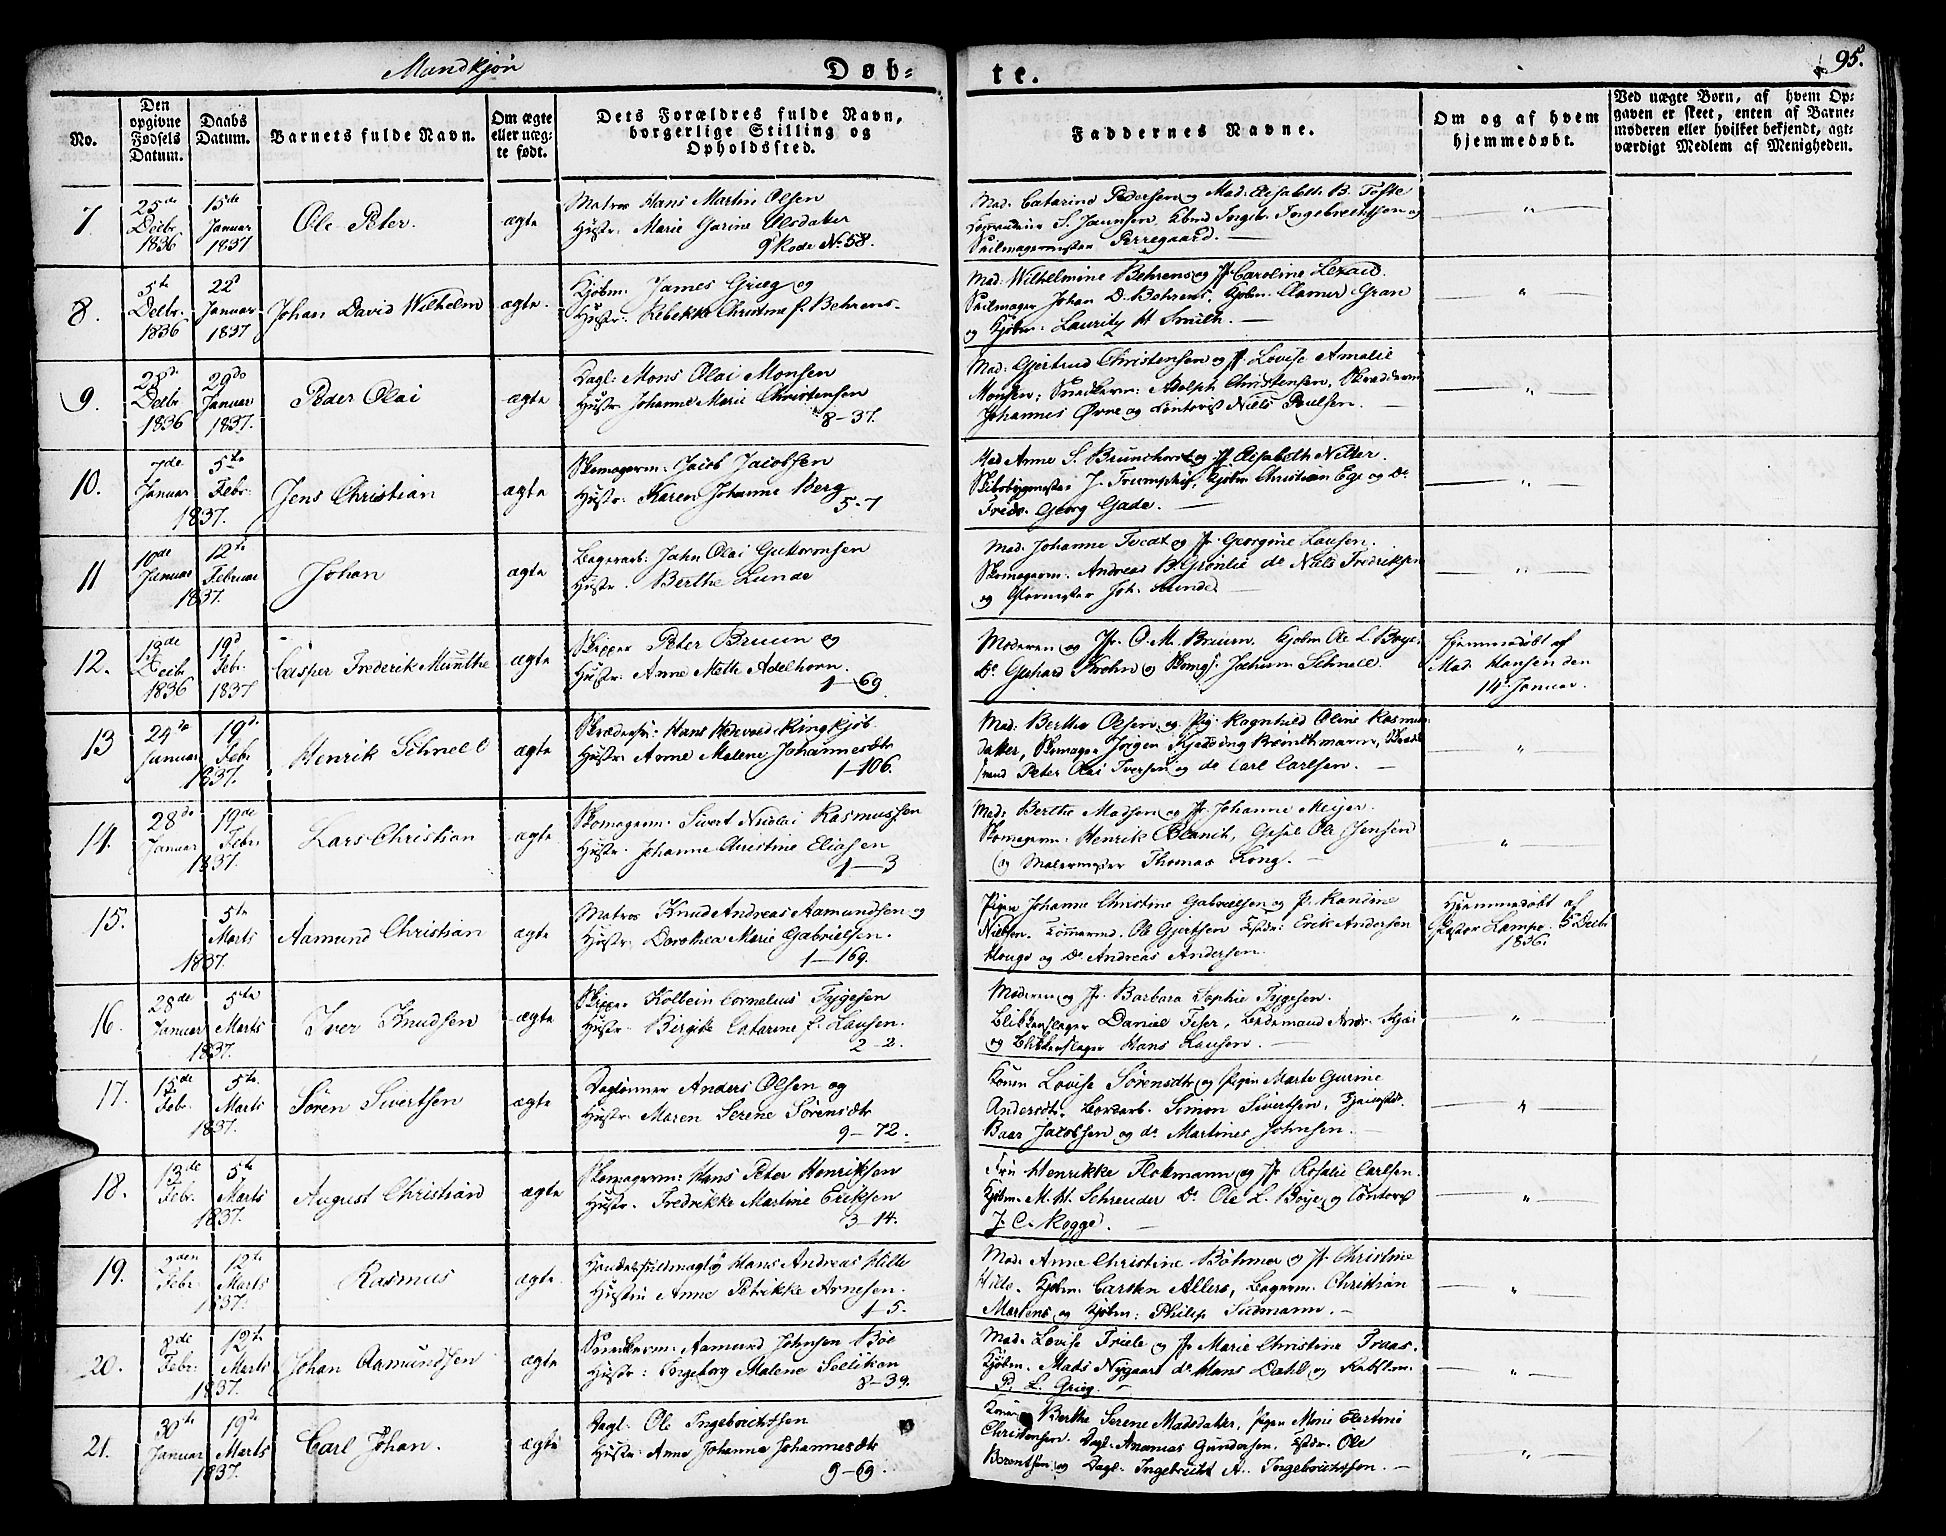 Mandkjøn
Døb=
te.
95.
No.
Den opgivne Fødsels Datum.
Daabs Datum.
Barnets fulde Navn.
Om ægte eller uægte født.
Dets Forældres fulde Navn, borgerlige Stilling og Opholdssted.
Faddernes Navne.
Om og af hvem hjemmedøbt.
Ved uægte Børn, af hvem Opgaven er skeet, enten af Barnemoderen eller hvilket bekjendt, agtværdigt Medlem af Menigheden.
7.
25de Decbr. 1836
15de Januar 1837
Ole Peter.
ægte
Matros Hans Martin Olsen
Hustr: Marie Gurine Olsdater
9 Rode No 58.
Mad. Catarina Pedersen og Mad. Elisabeth B. Føste
S. Jansen, Ingebr. Ingebrechtsen og
Seilmagermester Perregaard.
8.
5te Decbr. 1836
22d Januar 1837
Johan David Wilhelm
ægte.
Kjøbm. James Grieg og
Hustr: Rebekke Christine f. Behrens
Mad. Wilhelmine Behrens og Jfr Caroline
Seilmager Johan D. Behrens, Kjøbm. Clamer Gran
og Kjøbm: Lauritz H Smith.
9.
28d. Decbr. 1836
29de Januar 1837.
Peder Olai
ægte
Dagl: Mons Olai Monsen
Hustr: Johanne Marie Christensen
8-37.
Mad: Gjertrud Christensen og Jf. Lovise Amalie
Monsen, Snedkerm: Adolph Christensen, Skræderm
Johannes Øvre og Contorist Niels Poulsen.
10.
7de Januar
5te Febr.
1837.
Jens Christian
ægte
Skomagerm: Jacob Jacobsen
Hustr: Karen Johanne Berg
5-7
Mad Anne S. Brunchorst og Jf Elisabeth Nitter.
Skibsbygmester J. Trumphy, Kjøbm Christian Ege og Do
Fridr. Georg Gade.
11
10de Januar
12te Februar
1837.
Johan
ægte
Bagerarb: Jahn Olai Guttormsen
Hustr. Berthe Lunde
Mad. Johanne Tvedt og Jf. Georgine Lausen.
Skomagerm. Andreas B. Grønlie do Niels Fredriksen
og Glarmester Joh. Sunde
12.
13de Decbr 1836
19d Febr. 1837
Casper Frederik Munthe
ægte
Skipper Peter Bruun og
Hustr: Anne Meth Adelhorn.
1-69.
Moderen og Jfr. O. M. Bruun, Kjøbm Ole L. Boye,
Do Gerhard Krohn og Jochum Schnell.
Hjemmedøbt af
Mad. Hansen den
14d Januar.
13
24de Januar
19d. Febr.
1837.
Henrik Schnell
ægte
Skrædersv: Hans Hedevard Ringkjøb.
Hustr: Anne Malene Johannesdtr
1-106.
Mad: Berthe Olsen og Pig. Ragnhild Oline Rasmus
datter, Skomager Jørgen Kjelding
svend Peter Olai Iversen og do Carl Carlsen.
14.
28de Januar
19de Febr.
1837.
Lars Christian
ægte
Skomagerm. Sivert Nicolai Rasmussen
Hustr. Johanne Christine Eliasen
1-3
Mad: Berthe Madsen og Jfr Johanne Meyer.
Skomagerm: Henrik Blanch, Gesel Ole Jensen
og Malermester Thomas Kong.
15.
5te Marts
1837.
Aamund Christian
ægte
Matros Knud Andreas Aamundsen og
Hustr: Dorothea Marie Gabrielsen.
1-169.
Pigen Johanne Christine Gabrielsen og P. Randine
Nielsen. Tømmermd. Ole Gjertsen Erik Andersen
Houge og Do Andreas Andersen.
Hjemmedøbt af
Pastor Lampe. 5te Decbr
1836.
16.
28de Januar
5te Marts
1837.
Iver Knudsen
ægte
Skipper Kolbein Cornelius Tygesen
Hustr: Birgitte Catarine f. Lausen.
2-2.
Moderen og Jfr. Barbara Sophie Tygesen.
Blikkenslager Daniel Fiser,
og Blikkenslager Hans Lausen.
17.
15de Febr.
5te. Marts
1837.
Søren Sivertsen
ægte
Daglønner Anders Olsen og
Hustr: Maren Serene Sørensdtr
9-72.
Konen Lovise Sørensdtr og Pigen Marte Gurine
Andersdtr, Simon Sivertsen,
Baar Jacobsen og do Martines Johnsen.
18.
13de Febr.
5te Marts
1837.
August Christian
ægte
Skomagerm: Hans Peter Henriksen
Hustr. Fredrikke Martine Eriksen
3-14.
Fru Henrikke Flokmann og Jf. Rosalie Carlsen.
Kjøbm. M. H. Schreuder Do. Ole L. Boye og Contorist
J. C. Kogge.
19.
Febr.
12te Marts
1837.
Rasmus
ægte
Handelsfuldmægtig Hans Andreas Hille
Hustru Anne Petrikke Arnesen.
1-5.
Mad. Anne Christine Böhmer og Jf. Christine
Hille. Kjøbm. Carsten Allers, Bagerm. Christian
Martens og Kjøbm: Philip Sudmann.
20.
8de Febr.
12te Marts
1837.
Johan Aamundsen
ægte
Snedkerm: Aamund Johnsen Bøe
Hustr: Ingeborg Malene
8-39.
Mad. Lovise Friele og Jf Marie Christine Fraas.
Kjøbm. Mads Nygaard do Hans Dahl og
P. L. Grieg.
21.
30te Januar
19de Marts
1837.
Carl Johan.
ægte
Dagl. Ole Ingebrichtsen
Hustr: Anne Johanna Johannesdtr
9-69.
Konen Berthe Serene Madsdater, Pigen Marie
Christensen. Dagl. Ananias Gundersen, Ole
Berentsen og Dagl. Ingebricht A. Ingebrichtsen.